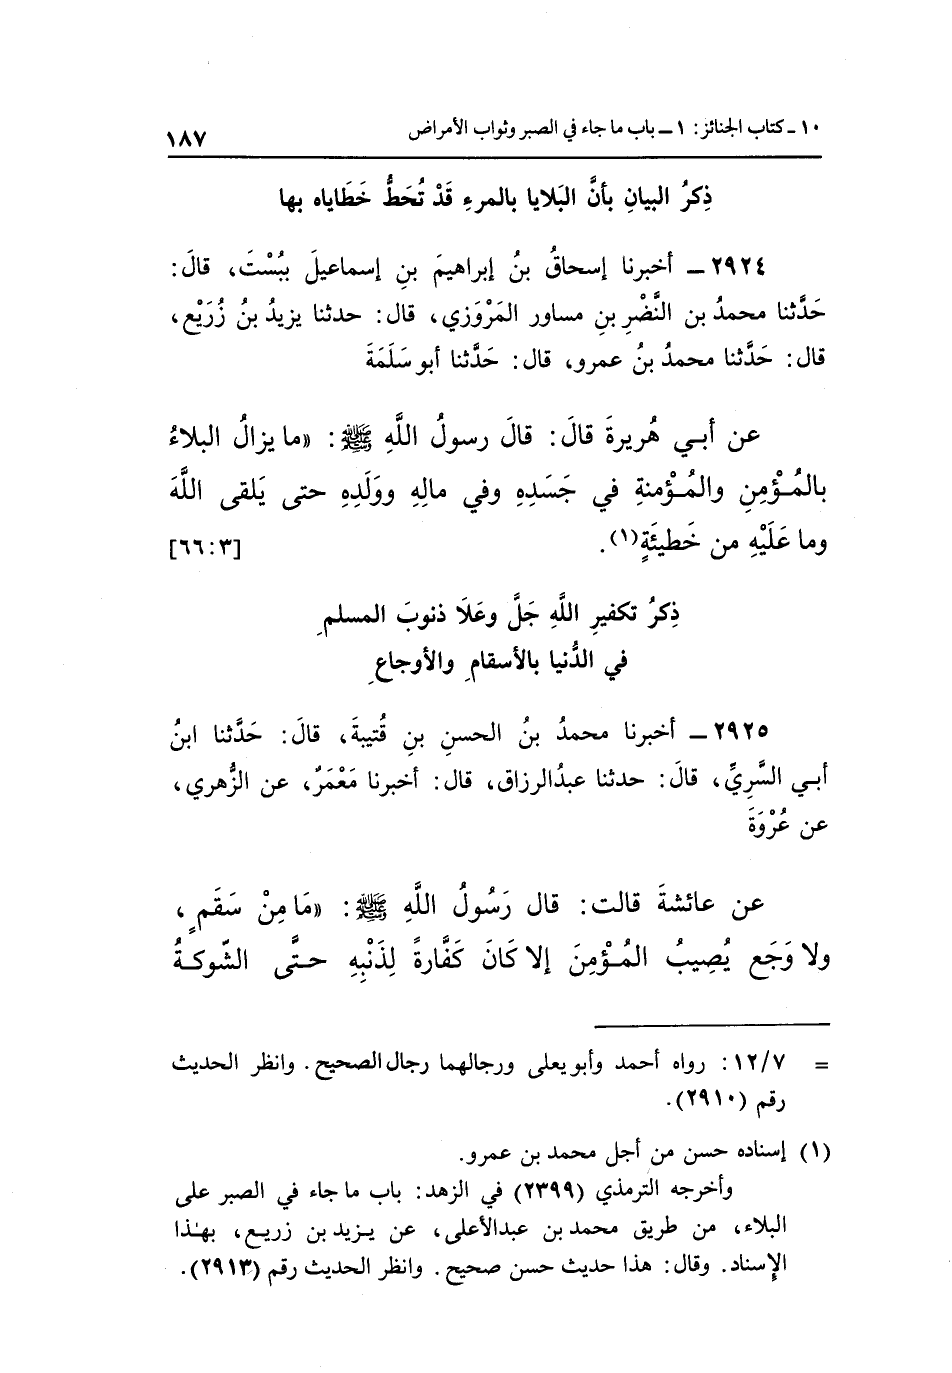 ١٠ ـ كتاب الجنائز: ١ ــ باب ما جاء في الصبر وثواب الأمراض
١٨٧
ذِكرُ البيانِ بأنَّ البَلايا بالمرءِ قَدْ تُحَطُّ خَطَاياه بها
٢٩٢٤ ــ أخبرنا إسحاقُ بنُ إبراهيمَ بنِ إسماعيلَ ببُسْتَ، قالَ:
حَدَّثنا محمدُ بن النَّضْرِ بنِ مساور المَرْوَزي، قال: حدثنا يزيدُ بنُ زُرَيْع،
قال: حَدَّثنا محمدُ بنُ عمرو، قال: حَدَّثنا أبو سَلَمَةَ
عن أبي هُريرةَ قالَ: قالَ رسولُ اللَّهِ ﷺ: «ما يزالُ البلاءُ
بالمُؤْمِنِ والمُؤْمنةِ في جَسَدِهِ وفي مالِهِ وولَدِهِ حتى يَلقى اللَّهَ
وما عَلَيْهِ من خَطيئَةٍ(١). [٦٦:٣]
ذِكرُ تكفيرِ اللَّهِ جَلَّ وعَلَا ذنوبَ المسلمِ
في الدُّنيا بالأسقامِ والأوجاعِ
٢٩٢٥ ــ أخبرنا محمدُ بنُ الحسنِ بنِ قُتيبةَ، قالَ: حَدَّثنا ابنُ
أبي السَّرِيِّ، قالَ: حدثنا عبدُالرزاق، قال: أخبرنا مَعْمَرٌ، عن الزُّهري،
عن عُرْوَةَ
عن عائشةَ قالت: قال رَسُولُ اللَّهِ ﷺ: «مَا مِنْ سَقَمٍ،
ولا وَجَع يُصِيبُ المُؤْمِنَ إلا كَانَ كَفَّارةً لِذَنْبِهِ حتَّى الشّوكةُ
= ١٢/٧: رواه أحمد وأبو يعلى ورجالهما رجال الصحيح. وانظر الحديث
رقم (٢٩١٠).
(١) إسناده حسن من أجل محمد بن عمرو.
وأخرجه الترمذي (٢٣٩٩) في الزهد: باب ما جاء في الصبر على
البلاء، من طريق محمد بن عبدالأعلى، عن يزيد بن زريع، بهذا
الإسناد. وقال: هذا حديث حسن صحيح. وانظر الحديث رقم (٢٩١٣).